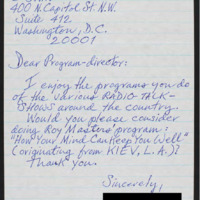 400 N. Capitol St. N.W.
Suite 412
Washington, D.C.
20001
Dear Program-director:
I enjoy the programs you do
of the various RADIO-TALK-
SHOWS around the country.
Would you please consider
doing Roy Masters' program:
"How Your Mind Can Keep You Well"
(originating from KIEV, L.A.)?
Thank you.
Sincerely,